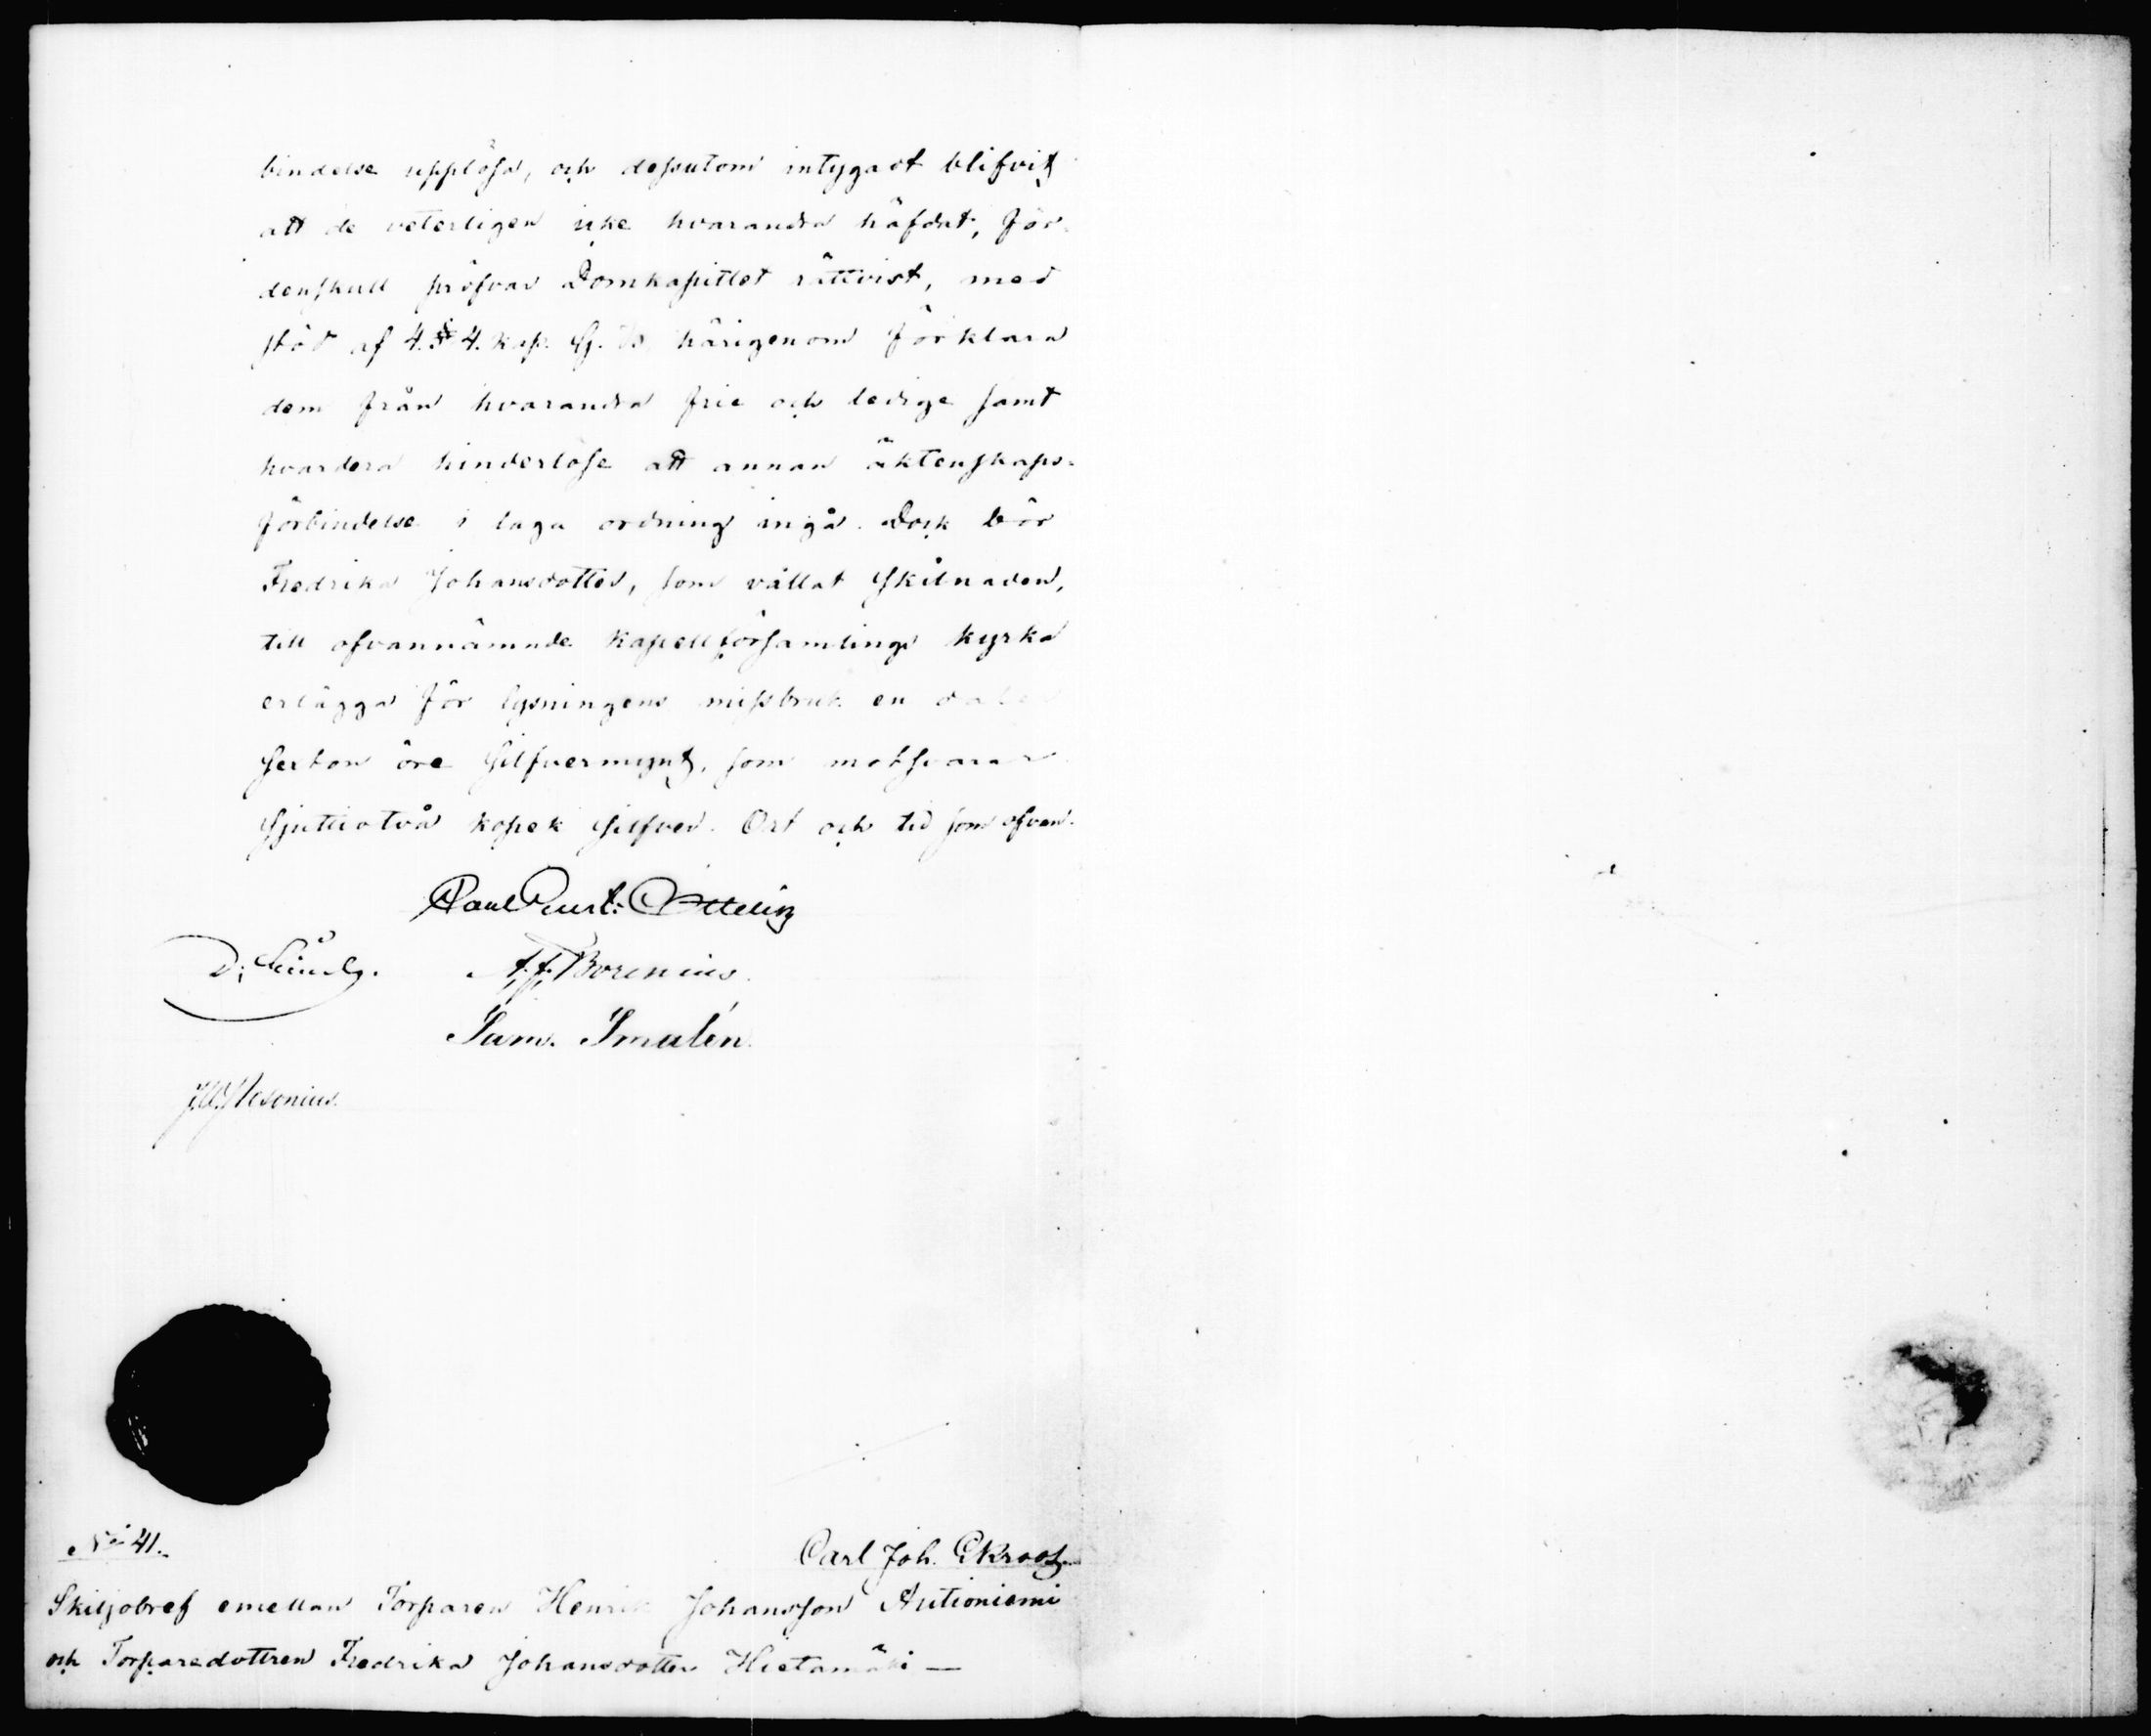 bindelse upplösa, och dessutom intygadt blifvit
att de veterligen icke hvarandra häfdat; för-
denskull pröfvar Domkapitlet rättvist, med
stöd af 4. § 4. kap. G. B. härigenom förklara
dem från hvarandra frie och ledige samt
hvardera hinderlöse att annan äktenskaps-
förbindelse i laga ordning ingå. Dock bör
Fredrika Johansdotter, som vållat skilnaden,
till ofvannämnde kapellförsamlings kyrka
erlägga för lysningens missbruk en daler
sexton öre silfvermynt, som motsvarar
sjuttiotvå kopek silfver. Ort och tid som ofvan.
A. F. Borenius.
Sam. Smalén.
No 41.
Carl Joh. Ekroos
Skiljobref emellan Torparen Henrik Johansson Autioniemi
och Torparedottren Fredrika Johansdotter Hietamäki —